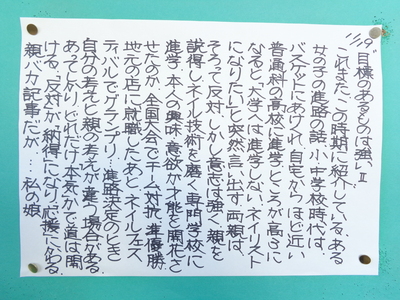 目標のあるものは強いⅡ
これまた、この時期に紹介している、ある
女の子の進路の話。小・中学校時代は、
バスケットにあけくれ、自宅からほど近い
普通科の高校に進学。ところが高3に
なると、「大学へは進学しない。ネイリスト
になりたい」と突然言い出す。両親は、
そろって反対。しかし意志は強く、親を
説得しネイル技術を磨く専門学校に
進学。本人の興味・意欲が才能を開花さ
せたのか、全国大会でチーム対抗準優勝。
地元の店に就職したあと、ネイルフェス
ティバルでグランプリ…進路決定のとき
自分の考えと親の考えが違う場合がある
あって、どれだけ本気かで道は開
ける。「反対が納得」になり、応援に、かわる。
親バカ記事だが…私の娘